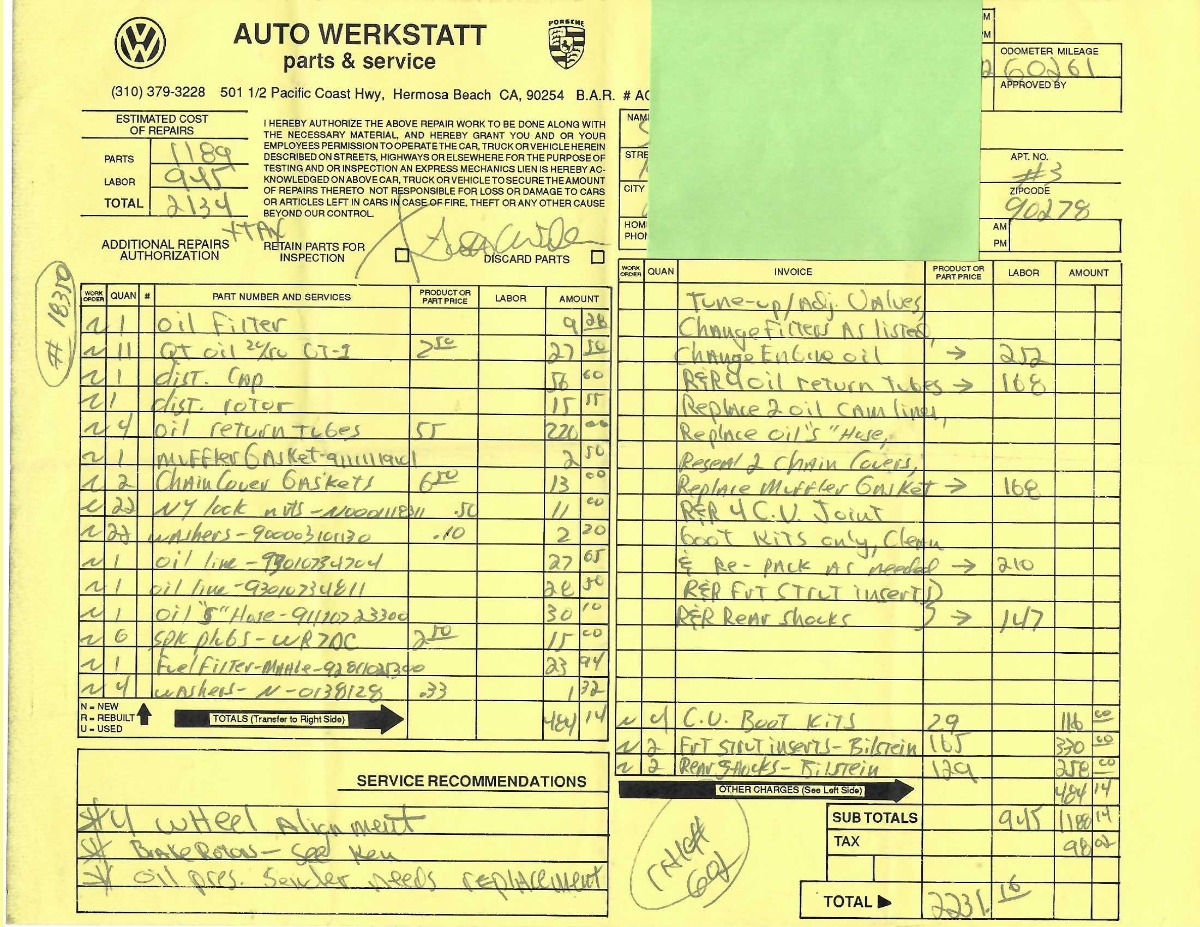 AUTO WERKSTATT
parts & service
PORSCHE
(310) 379-3228 501 1/2 Pacific Coast Hwy, Hermosa Beach CA, 90254 B.A.R. # AC
ODOMETER MILEAGE
60261
APPROVED BY
ESTIMATED COST
OF REPAIRS
PARTS 1189
LABOR 945
TOTAL 2134
+TAX
I HEREBY AUTHORIZE THE ABOVE REPAIR WORK TO BE DONE ALONG WITH
THE NECESSARY MATERIAL, AND HEREBY GRANT YOU AND OR YOUR
EMPLOYEES PERMISSION TO OPERATE THE CAR, TRUCK OR VEHICLE HEREIN
DESCRIBED ON STREETS, HIGHWAYS OR ELSEWHERE FOR THE PURPOSE OF
TESTING AND OR INSPECTION AN EXPRESS MECHANICS LIEN IS HEREBY AC-
KNOWLEDGED ON ABOVE CAR, TRUCK OR VEHICLE TO SECURE THE AMOUNT
OF REPAIRS THERETO NOT RESPONSIBLE FOR LOSS OR DAMAGE TO CARS
OR ARTICLES LEFT IN CARS IN CASE OF FIRE, THEFT OR ANY OTHER CAUSE
BEYOND OUR CONTROL.
NAM
STRE
CITY
HOM
PHON
APT. NO.
#3
ZIPCODE
90278
AM
PM
ADDITIONAL REPAIRS
AUTHORIZATION
RETAIN PARTS FOR
INSPECTION
DISCARD PARTS
# 18350
WORK ORDER QUAN # PART NUMBER AND SERVICES PRODUCT OR PART PRICE LABOR AMOUNT
N 1 oil filter 9 28
N 11 QT oil 20/50 GT-1 2 50 27 50
N 1 dist. cap 56 60
N 1 dist. rotor 15 55
N 4 oil return tubes 55 220 00
N 1 Muffler Gasket- 2 50
N 2 Chain Cover Gaskets 6 50 13 00
N 22 NY lock nuts- .50 11 00
N 22 washers-90000310130 .10 2 20
N 1 oil line-93010734704 27 65
N 1 oil line-93010734811 28 50
N 1 oil "S" Hose-91110723300 30 10
N 6 spk plugs-WR7DC 2 50 15 00
N 1 Fuel Filter-Mahle- 23 94
N 4 washers-N-0138128 .33 1 32
N = NEW
R = REBUILT
U = USED
TOTALS (Transfer to Right Side) 484 14
SERVICE RECOMMENDATIONS
*4 wheel Alignment
* Brake Rotors- See Ken
* oil pres. sender needs replacement
WORK ORDER QUAN INVOICE PRODUCT OR PART PRICE LABOR AMOUNT
Tune-up/Adj. Valves,
Change Filters As listed,
Change Engine oil → 252
R&R 4 oil return tubes → 168
Replace 2 oil cam lines,
Replace oil "S" Hose,
Reseal 2 Chain Covers,
Replace Muffler Gasket → 168
R&R 4 C.V. Joint
boot Kits only, Clean
& Re-pack as needed → 210
R&R Frt Strut inserts)
R&R Rear shocks } → 147
N 4 C.V. Boot Kits 29 116 00
N 2 Frt Strut inserts-Bilstein 165 330 00
N 2 Rear Shocks-Bilstein 129 258 00
OTHER CHARGES (See Left Side) 484 14
SUB TOTALS 945 1188 14
TAX 98 02
TOTAL 2231.16
692